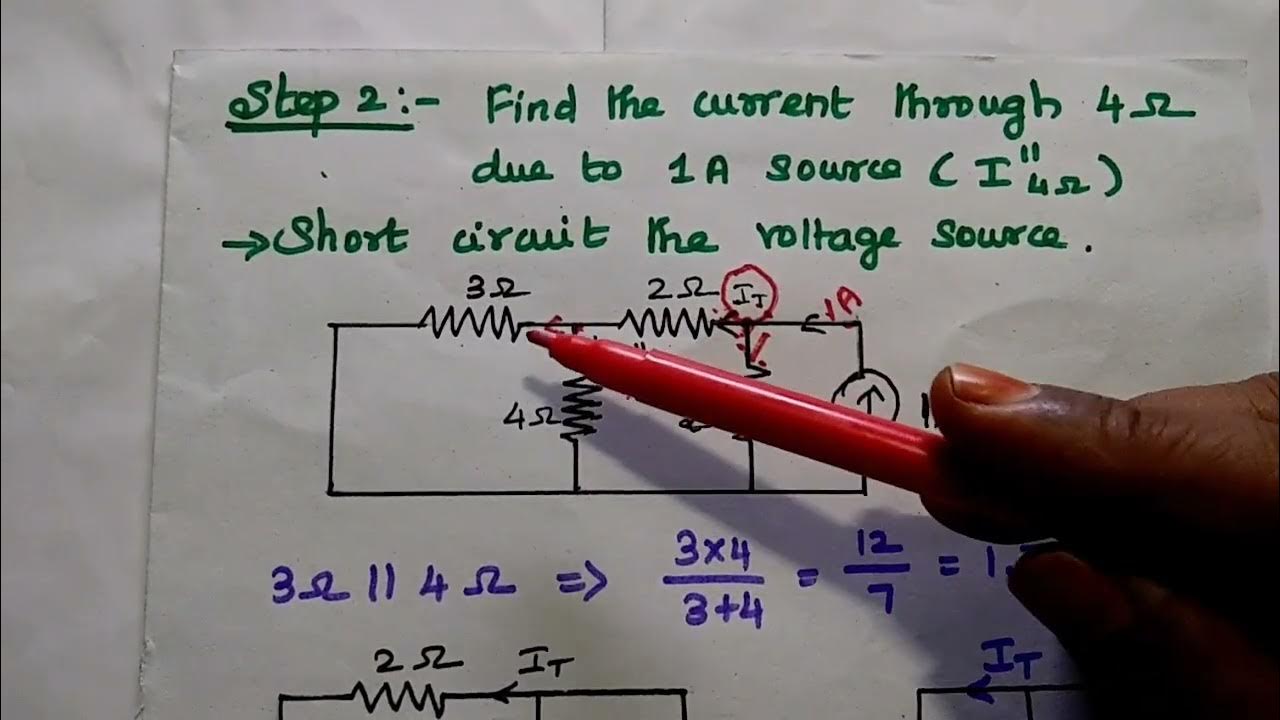 Step 2:- Find the current through 4Ω
due to 1A source (I"4Ω)
→ Short circuit the voltage source.
3Ω 2Ω IT 1A
4Ω
3Ω || 4Ω => 3×4/3+4 = 12/7 = 1.
2Ω IT IT